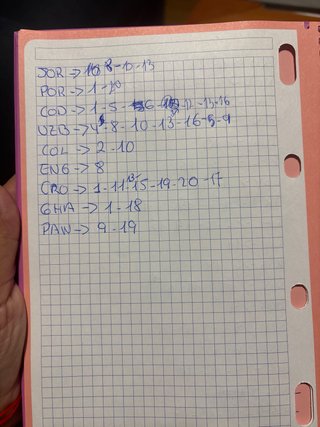 JOR -> 8 - 10 - 13
POR -> 1 - 20
COD -> 1 - 5 - 6 - 12 - 15 - 16
UZB -> 4 - 8 - 10 - 13 - 16 - 5 - 9
COL -> 2 - 10
ENG -> 8
CRO -> 1 - 11 - 15 - 19 - 20 - 17
GHA -> 1 - 18
PAN -> 9 - 19